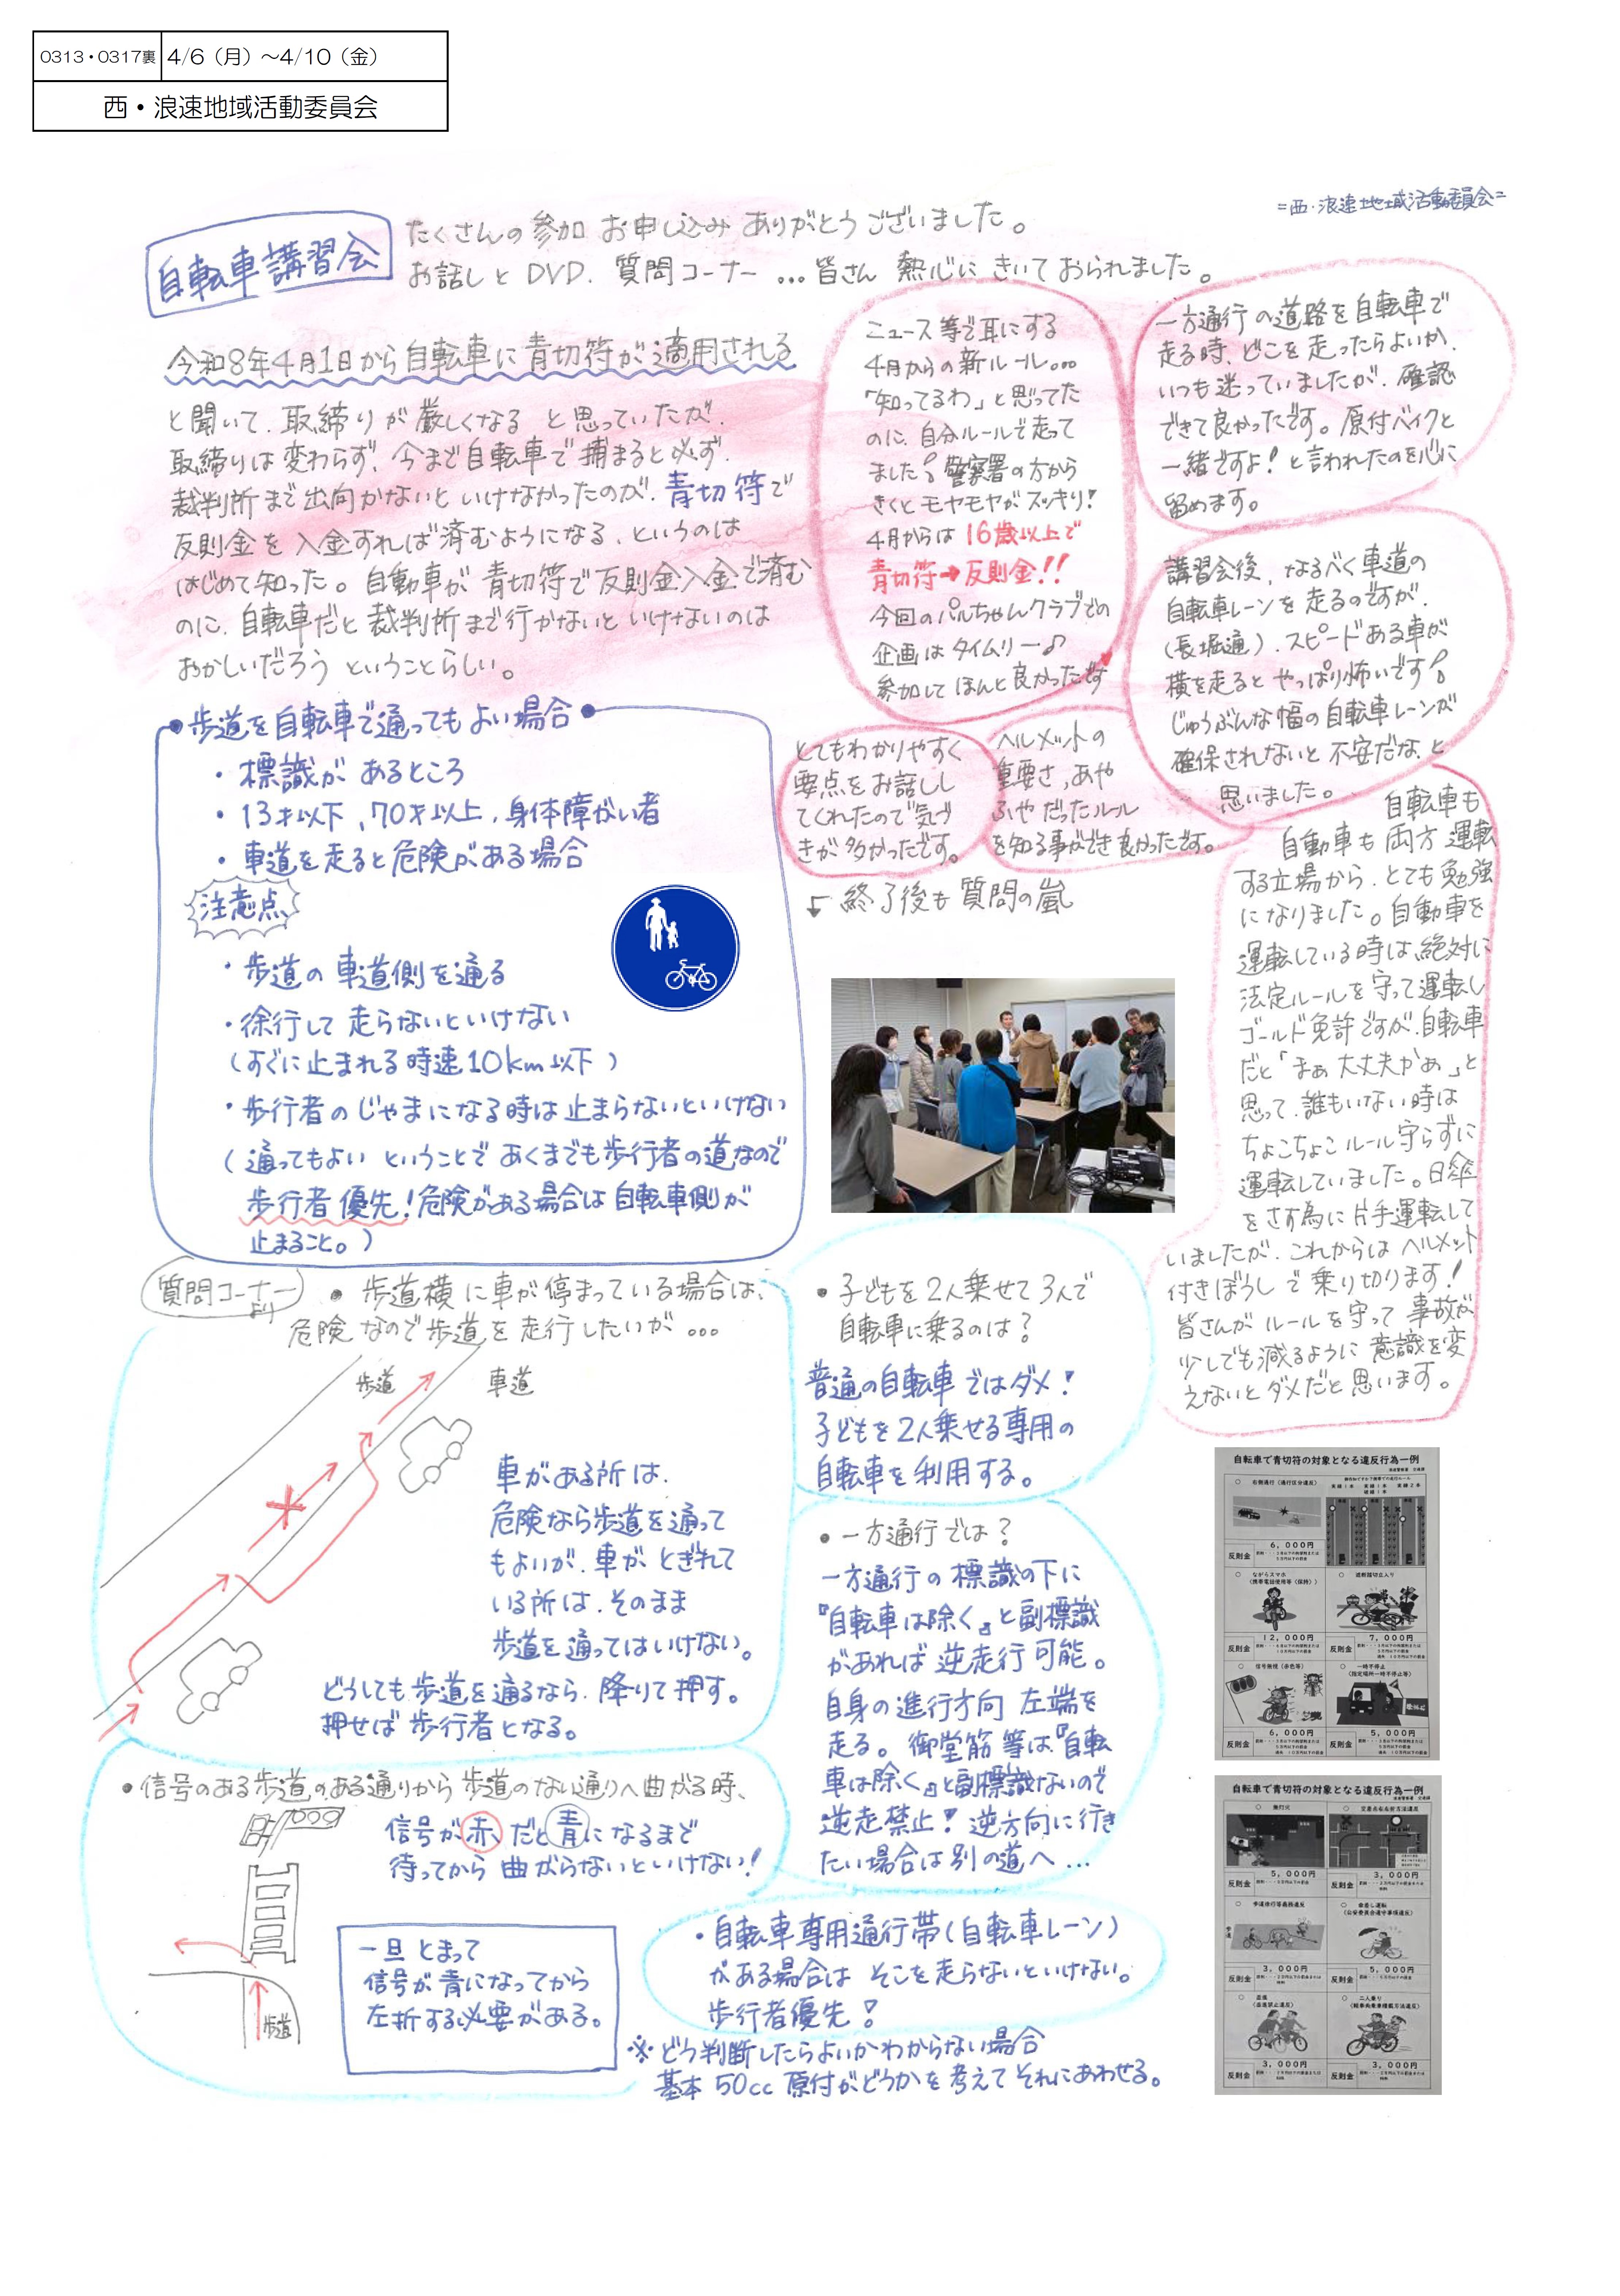 0313・0317裏
4/6（月）～4/10（金）
西・浪速地域活動委員会
=西・浪速地域活動委員会=
自転車講習会
たくさんの参加 お申し込み ありがとうございました。
お話しと DVD、質問コーナー …皆さん 熱心に きいて おられました。
今和8年4月1日から自転車に青切符が適用される
と聞いて、取締りが厳しくなる と思っていたが、
取締りは変わらず、今まで自転車で捕まると必ず、
裁判所まで出向かないと いけなかったのが、青切符で
反則金を入金すれば済むようになる、というのは
はじめて知った。自動車が青切符で反則金入金で済む
のに、自転車だと裁判所まで行かないと いけないのは
おかしいだろう ということらしい。
ニュース等で耳にする
4月からの新ルール。。。
「知ってるわ」と思ってた
のに、自分ルールで走って
ました！警察署の方から
きくとモヤモヤがスッキリ！
4月からは 16歳以上で
青切符→反則金!!
今回のパルちゃんクラブでの
企画はタイムリー♪
参加して ほんと良かったです
一方通行の道路を自転車で
走る時、どこを走ったらよいか、
いつも迷っていましたが、確認
できて良かったです。原付バイクと
一緒ですよ！と言われたのを心に
留めます。
講習会後、なるべく車道の
自転車レーンを走るのですが、
（長堀通）、スピードある車が
横を走ると やっぱり怖いです！
じゅうぶんな幅の自転車レーンが
確保されないと 不安だな、と
思いました。
とてもわかりやすく
要点をお話しし
てくれたので気づ
きが多かったです。
ヘルメットの
重要さ、あや
ふやだったルール
を知る事ができ良かったです。
↓終了後も質問の嵐
自転車も
自動車も両方運転
する立場から、とても勉強
になりました。自動車を
運転している時は、絶対に
法定ルールを守って運転し
ゴールド免許ですが、自転車
だと「まぁ大丈夫かぁ」と
思って、誰もいない時は
ちょこちょこルール守らずに
運転していました。日傘
をさす為に片手運転して
いましたが、これからはヘルメット
付きぼうしで乗り切ります！
皆さんがルールを守って事故が
少しでも減るように意識を変
えないとダメだと思います。
●歩道を自転車で通ってもよい場合●
・標識があるところ
・13才以下、70才以上、身体障がい者
・車道を走ると危険がある場合
注意点
・歩道の車道側を通る
・徐行して走らないといけない
（すぐに止まれる時速10km以下）
・歩行者のじゃまになる時は止まらないといけない
（通ってもよい ということで あくまでも歩行者の道なので
歩行者優先！危険がある場合は自転車側が
止まること。）
質問コーナーより
●歩道横に車が停まっている場合は、
危険なので歩道を走行したいが…
歩道
車道
車がある所は、
危険なら歩道を通って
もよいが、車がとぎれて
いる所は、そのまま
歩道を通ってはいけない。
どうしても歩道を通るなら、降りて押す。
押せば歩行者となる。
●子どもを2人乗せて3人で
自転車に乗るのは？
普通の自転車ではダメ！
子どもを2人乗せる専用の
自転車を利用する。
●一方通行では？
一方通行の標識の下に
『自転車は除く』と副標識
があれば逆走行可能。
自身の進行方向 左端を
走る。御堂筋等は『自転
車は除く』と副標識ないので
逆走禁止！逆方向に行き
たい場合は別の道へ…
●信号のある歩道のある通りから歩道のない通りへ曲がる時、
信号が赤だと青になるまで
待ってから曲がらないといけない！
歩道
一旦とまって
信号が青になってから
左折する必要がある。
・自転車専用通行帯（自転車レーン）
がある場合は そこを走らないといけない。
歩行者優先！
※どう判断したらよいかわからない場合
基本 50cc 原付がどうかを考えて それにあわせる。
自転車で青切符の対象となる違反行為一例
右側通行（通行区分違反）
反則金 6,000円
ながらスマホ
（携帯電話使用等（保持））
遮断踏切立入り
反則金 12,000円
反則金 7,000円
信号無視（赤色等）
一時不停止
（指定場所一時不停止等）
反則金 6,000円
反則金 5,000円
自転車で青切符の対象となる違反行為一例
無灯火
交差点右左折方法違反
反則金 5,000円
反則金 3,000円
歩道徐行等義務違反
傘差し運転
（公安委員会遵守事項違反）
反則金 3,000円
反則金 5,000円
並進
（並進禁止違反）
二人乗り
（軽車両乗車積載方法違反）
反則金 3,000円
反則金 3,000円